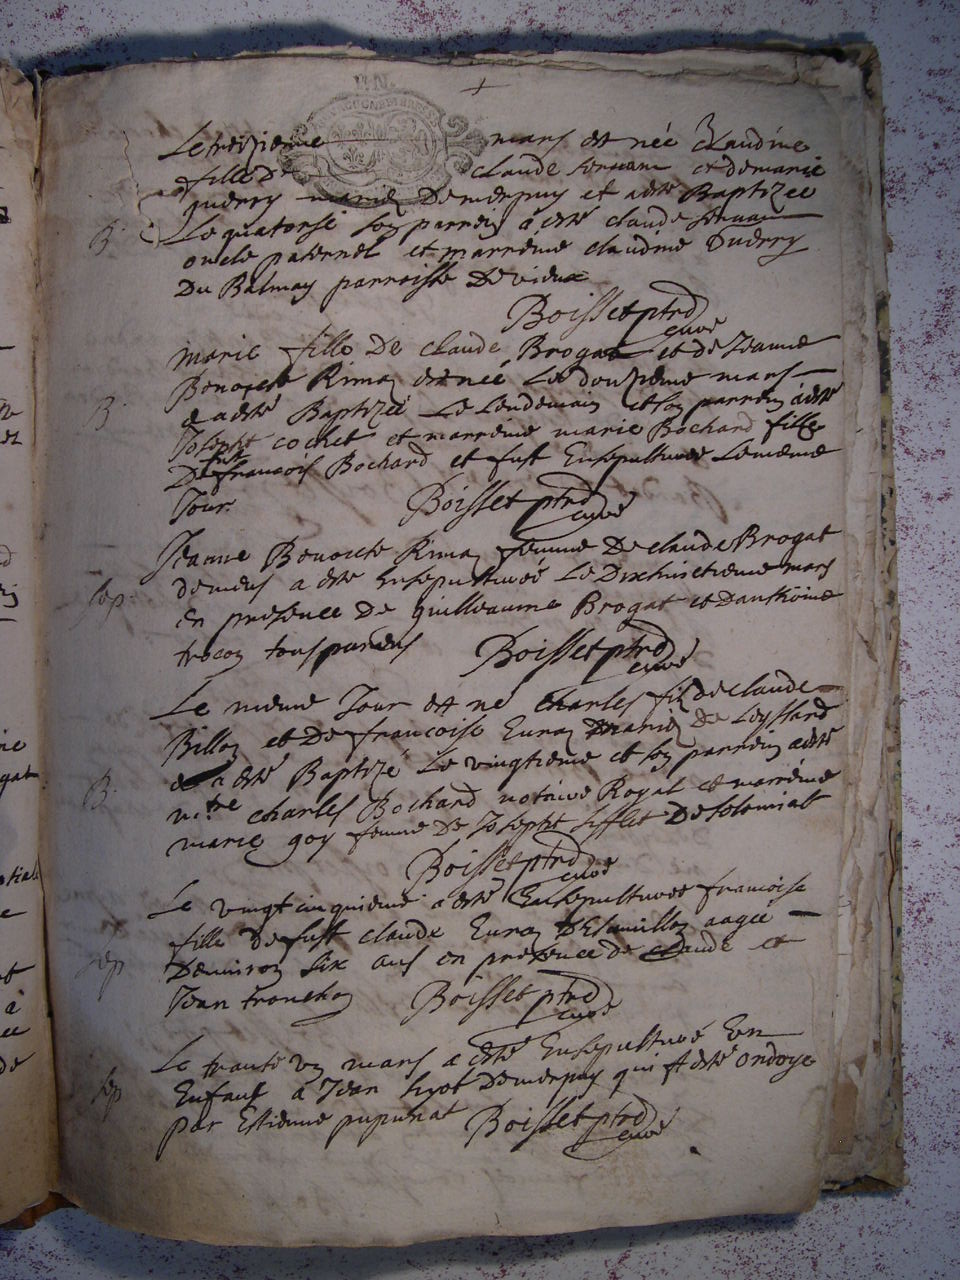 Le treizieme mars est née Claudine
fille De claude et de marie
guerry mariez Demerpuy et a esté Baptizee
B. Le quatorse son parrein a esté claude
oncle paternel et marreine claudine Guerry
Du Balmay parroisse De vieux
Boisset ptre
curé
marie fille De claude Brogat et de Jeanne
Benoiste Rimaz est née Le douzieme mars
B. e a esté Baptizée Le Lendemain et son parrein a esté
Joseph cochet et marreine marie Bochard fille
De fust francois Bochard et fust Ensepulturee Le meme
Jour Boisset ptre
curé
Jeanne Benoiste Rimaz femme De claude Brogat
sep. a esté Ensepulturée Le Dixhuictieme mars
en presence De guilleaume Brogat et Danthoine
trocon tous parens Boisset ptre
curé
Le meme Jour est né Charles fils de claude
Billon et De francoise Euraz mariez de Leyssard
B. e a esté Baptizé Le vingtieme et son parrein a esté
mtre charles Bochard notaire Royal et marreine
marie goy femme De Joseph Sifflet De Solomiat
Boisset ptre
curé
Le vingt cinquieme a esté Ensepulturee francoise
fille De fust claude Euraz aagée
sep Denviron six ans en presence de claude et
Jean tronchon Boisset ptre
curé
Le trante un mars a esté Ensepulturé un
sep Enfant a Jean Demerpuy qui fust esté ondoye
par Estienne pupunat Boisset ptre
curé